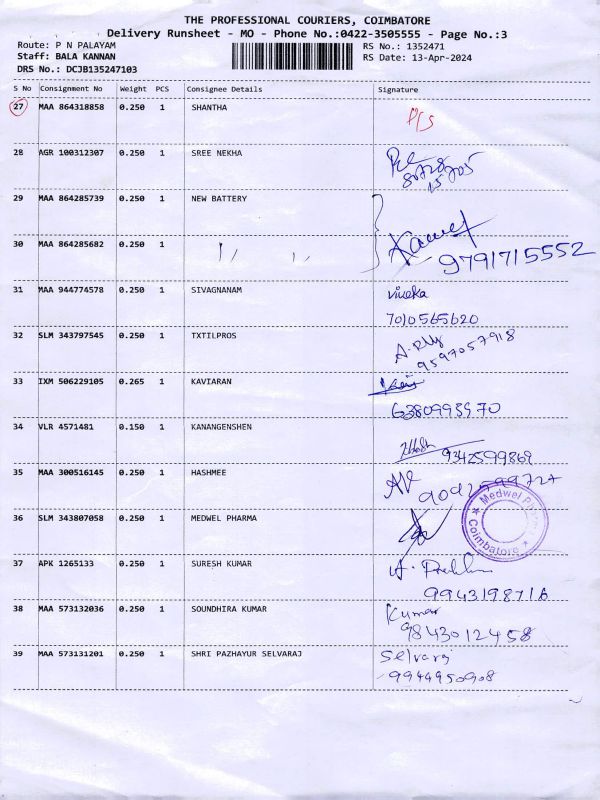 THE PROFESSIONAL COURIERS, COIMBATORE
Delivery Runsheet - MO - Phone No.:0422-3505555 - Page No.:3
Route: P N PALAYAM
RS No.: 1352471
Staff: BALA KANNAN
RS Date: 13-Apr-2024
DRS No.: DCJB135247103
S No Consignment No Weight PCS Consignee Details Signature
27 MAA 864318858 0.250 1 SHANTHA
28 AGR 100312307 0.250 1 SREE NEKHA
29 MAA 864285739 0.250 1 NEW BATTERY
30 MAA 864285682 0.250 1 ,, ,,
9791715552
31 MAA 944774578 0.250 1 SIVAGNANAM viveka
7010565620
32 SLM 343797545 0.250 1 TXTILPROS
9597057918
33 IXM 506229105 0.265 1 KAVIARAN
6380993970
34 VLR 4571481 0.150 1 KANANGENSHEN
9342599869
35 MAA 300516145 0.250 1 HASHMEE
36 SLM 343807058 0.250 1 MEDWEL PHARMA
Medwel Pharma
Coimbatore
37 APK 1265133 0.250 1 SURESH KUMAR
9943198716
38 MAA 573132036 0.250 1 SOUNDHIRA KUMAR Kumar
9843012458
39 MAA 573131201 0.250 1 SHRI PAZHAYUR SELVARAJ Selvaraj
9944950908